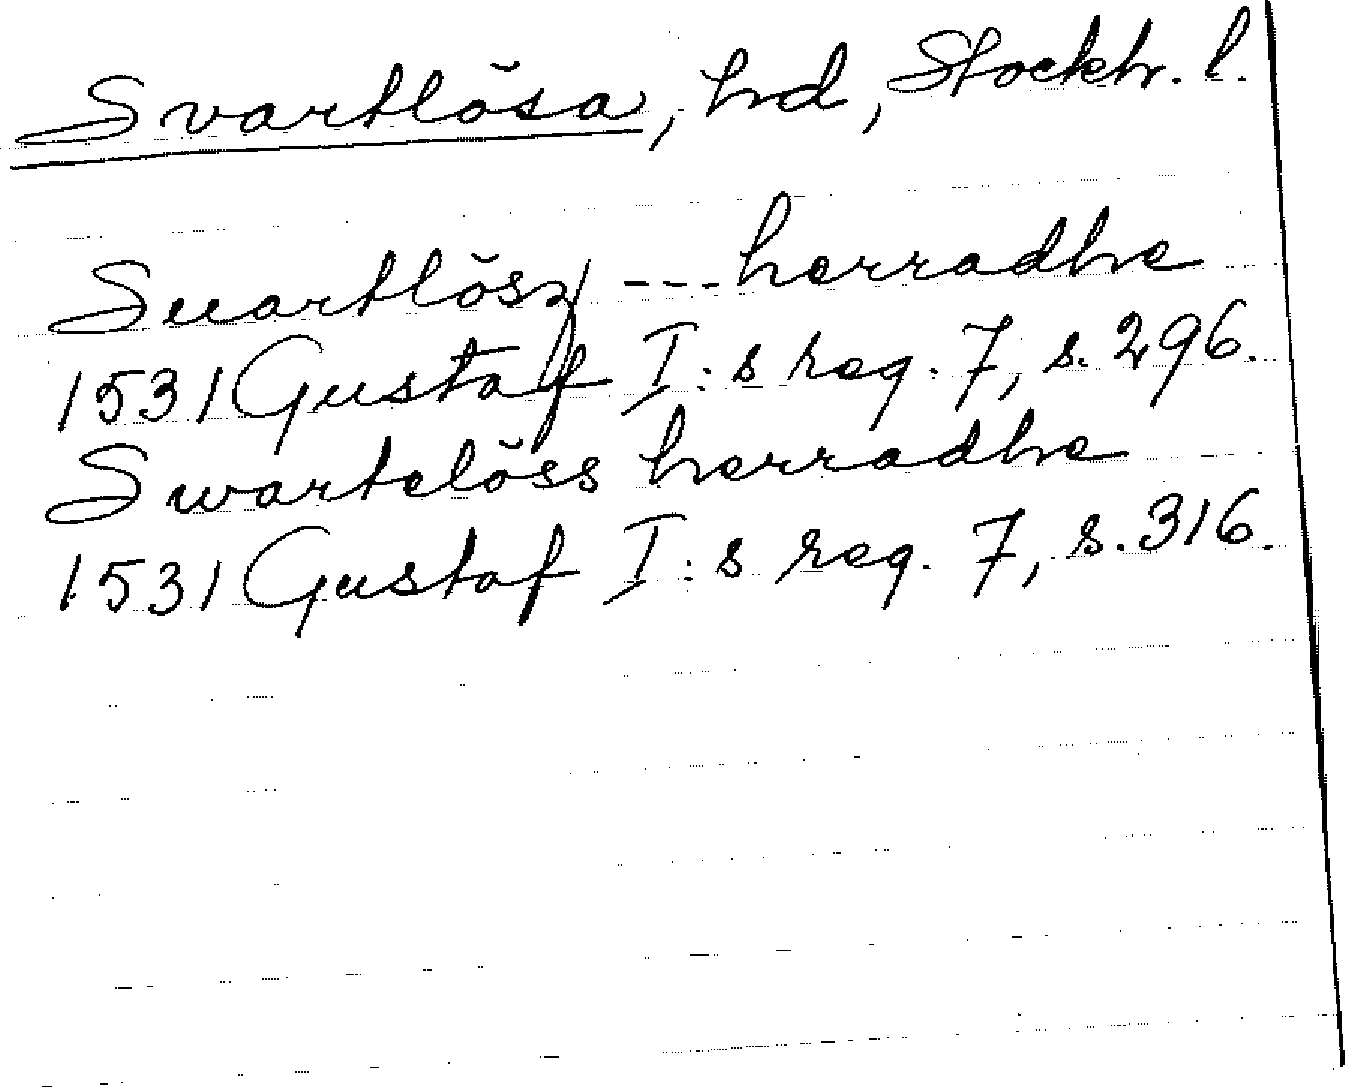 Svartlösa, hd, Stockh. l.
Suartlösz --- herradhe
1531 Gustaf I:s reg. 7, s. 296.
Swartelöss herradhe
1531 Gustaf I:s reg. 7, s. 316.